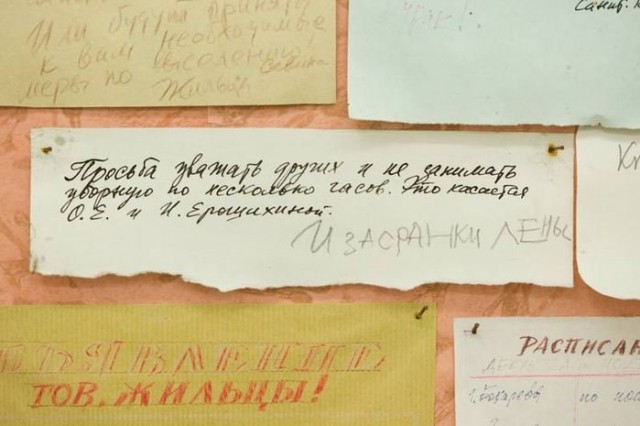 Или будут приняты
к вам необходимые
меры по выселению
Жильцы
Санит.
Просьба уважать других и не занимать
уборную по несколько часов. Это касается
О. Е. и И. Ерошихиной.
И ЗАСРАНКИ ЛЕНЫ
ОБЪЯВЛЕНИЕ
ТОВ. ЖИЛЬЦЫ!
РАСПИСАН
по